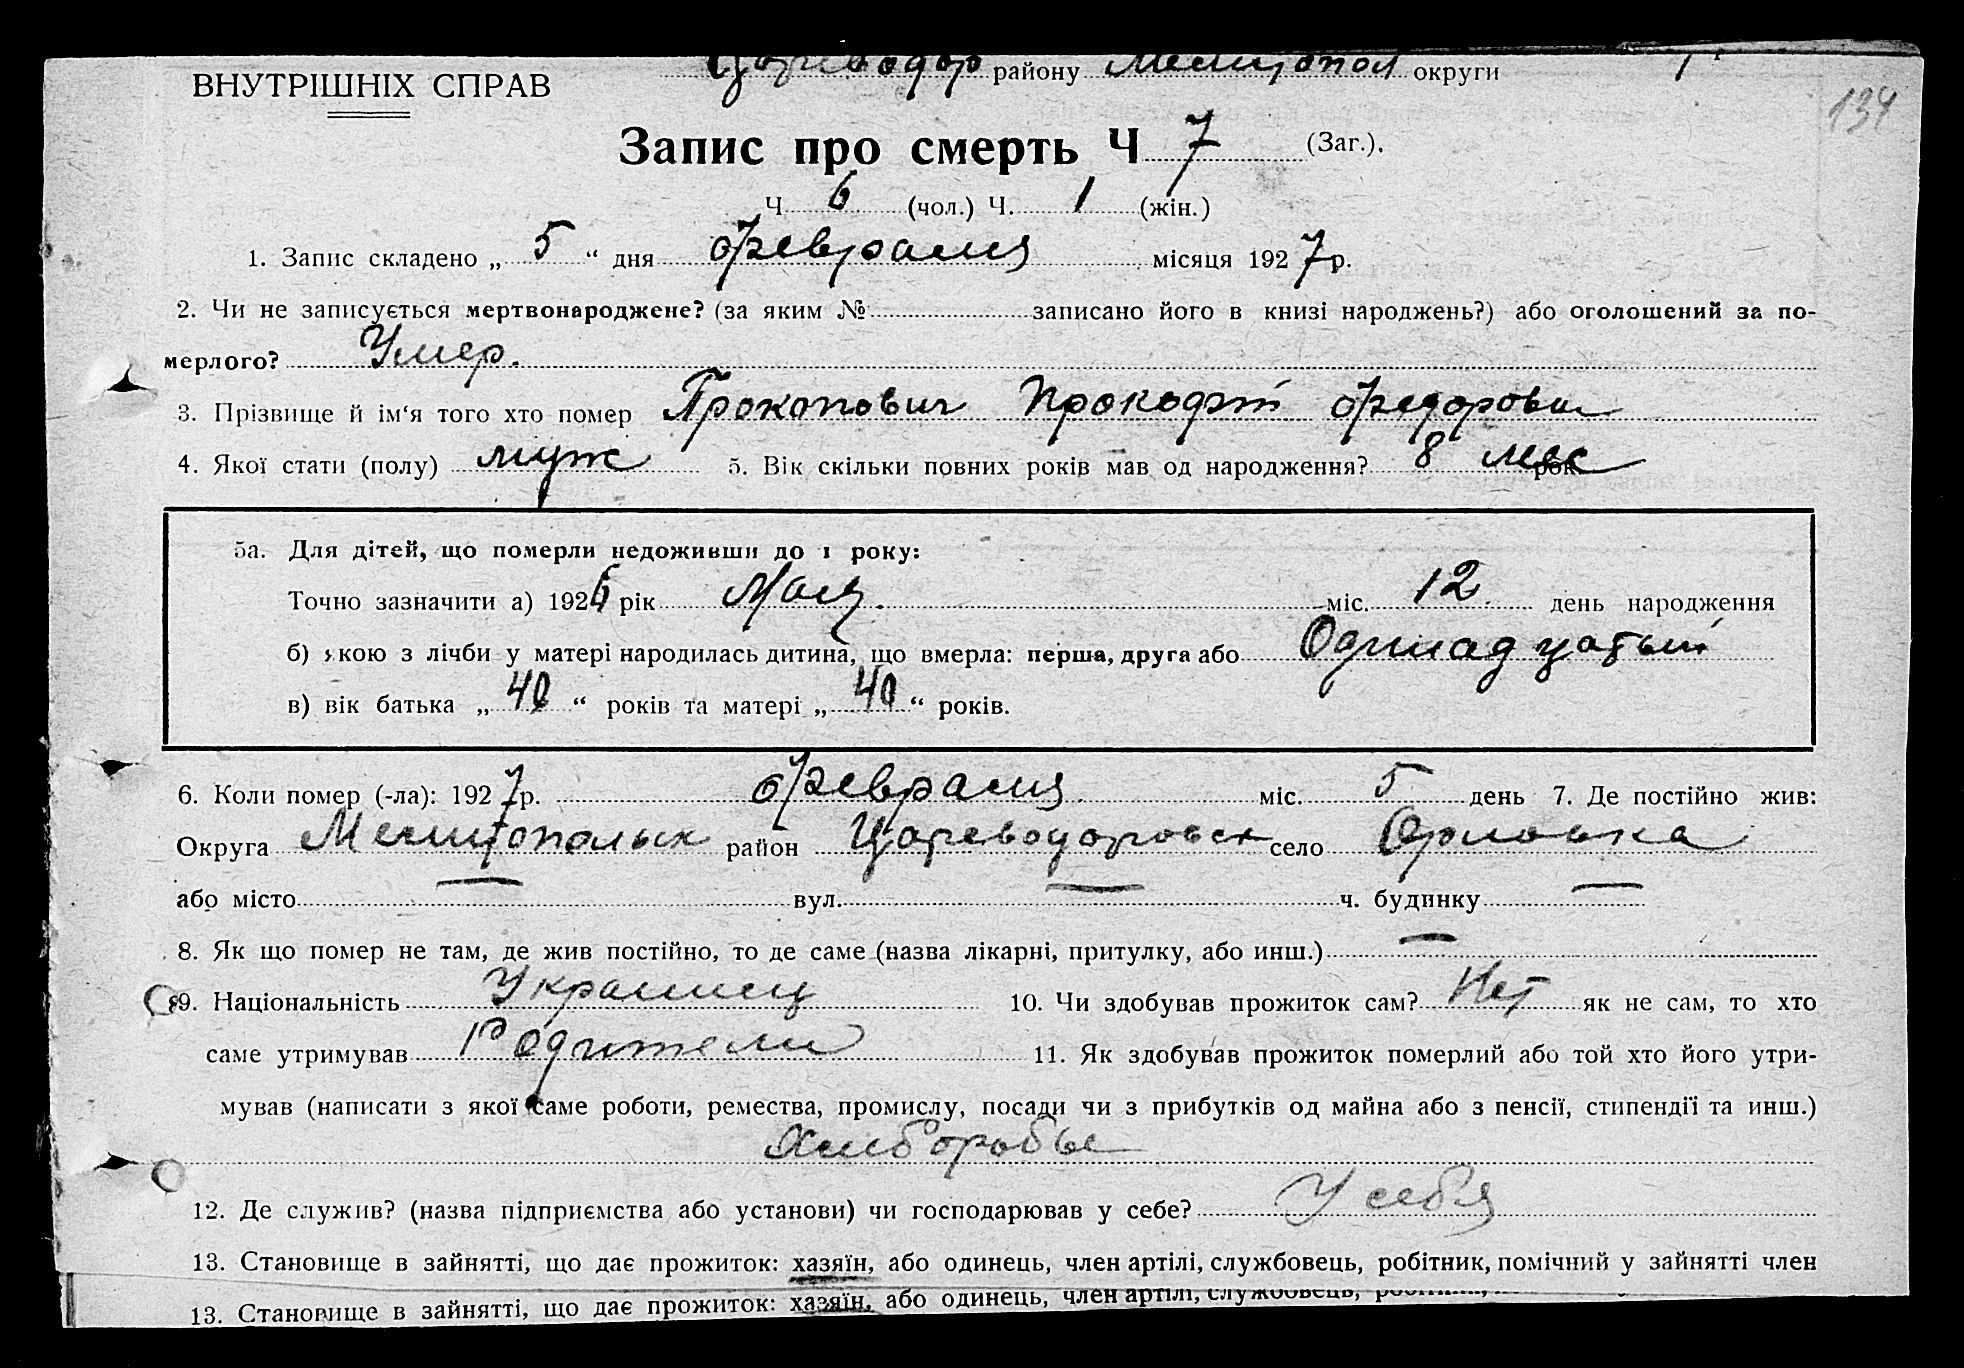 ВНУТРІШНІХ СПРАВ
Цареводор району Мелитопол округи
134
Запис про смерть Ч 7 (Заг.).
Ч 6 (чол.) Ч. 1 (жін.)
1. Запис складено „ 5 “ дня февраля місяця 1927 р.
2. Чи не записується мертвонароджене? (за яким № записано його в книзі народжень?) або оголошений за по-
мерлого? Умер.
3. Прізвище й ім'я того хто помер Прокопович Прокофій Федорович
4. Якої стати (полу) муж 5. Вік скільки повних років мав од народження? 8 мес рок.
5а. Для дітей, що померли недоживши до 1 року:
Точно зазначити а) 1926 рік Мая. міс. 12 день народження
б) якою з лічби у матері народилась дитина, що вмерла: перша, друга або Одинадцатый
в) вік батька „ 40 “ років та матері „ 40 “ років.
6. Коли помер (-ла): 1927 р. февраля. міс. 5 день 7. Де постійно жив:
Округа Мелитопольск район Цареводаровск село Орловка
або місто — вул. — ч. будинку —
8. Як що помер не там, де жив постійно, то де саме (назва лікарні, притулку, або инш.) —
9. Національність Украинец 10. Чи здобував прожиток сам? Нет як не сам, то хто
саме утримував Родители 11. Як здобував прожиток померлий або той хто його утри-
мував (написати з якої саме роботи, ремества, промислу, посади чи з прибутків од майна або з пенсії, стипендії та инш.)
Хлеборобы
12. Де служив? (назва підприємства або установи) чи господарював у себе? У себя
13. Становище в зайнятті, що дає прожиток: хазяїн, або одинець, член артілі, службовець, робітник, помічний у зайнятті член
13. Становище в зайнятті, що дає прожиток: хазяїн, або одинець, член артілі, службовець,